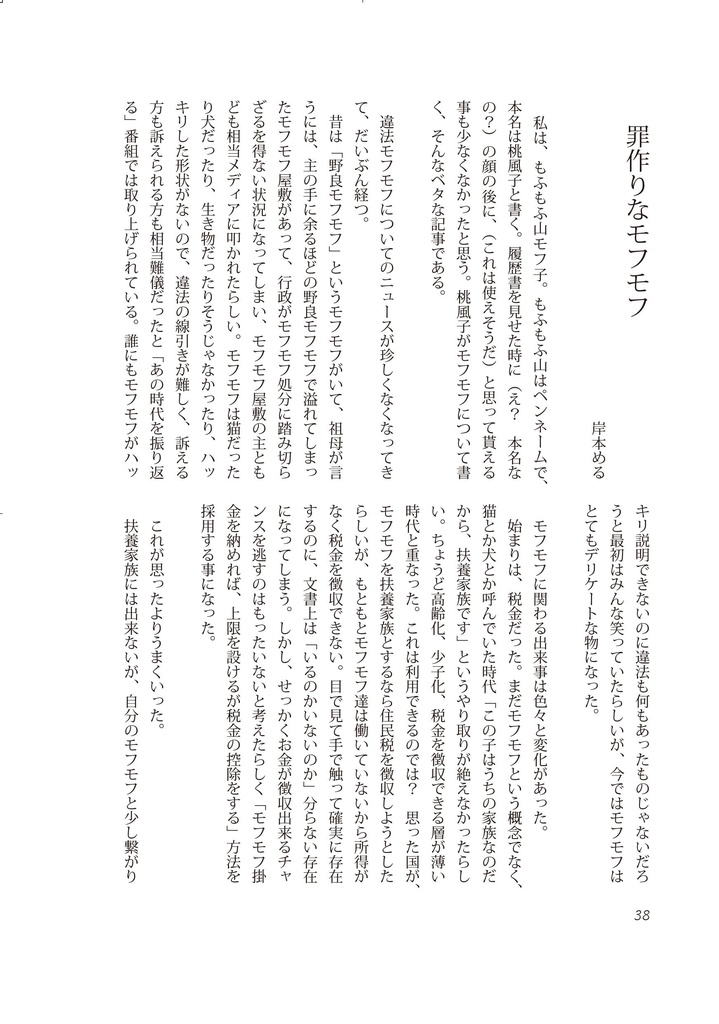 罪作りなモフモフ
岸本める
私は、もふもふ山モフ子。もふもふ山はペンネームで、
本名は桃風子と書く。履歴書を見せた時に（え？　本名な
の？）の顔の後に、（これは使えそうだ）と思って貰える
事も少なくなかったと思う。桃風子がモフモフについて書
く、そんなベタな記事である。
違法モフモフについてのニュースが珍しくなくなってき
て、だいぶん経つ。
昔は「野良モフモフ」というモフモフがいて、祖母が言
うには、主の手に余るほどの野良モフモフで溢れてしまっ
たモフモフ屋敷があって、行政がモフモフ処分に踏み切ら
ざるを得ない状況になってしまい、モフモフ屋敷の主とも
ども相当メディアに叩かれたらしい。モフモフは猫だった
り犬だったり、生き物だったりそうじゃなかったり、ハッ
キリした形状がないので、違法の線引きが難しく、訴える
方も訴えられる方も相当難儀だったと「あの時代を振り返
る」番組では取り上げられている。誰にもモフモフがハッ
キリ説明できないのに違法も何もあったものじゃないだろ
うと最初はみんな笑っていたらしいが、今ではモフモフは
とてもデリケートな物になった。
モフモフに関わる出来事は色々と変化があった。
始まりは、税金だった。まだモフモフという概念でなく、
猫とか犬とか呼んでいた時代「この子はうちの家族なのだ
から、扶養家族です」というやり取りが絶えなかったらし
い。ちょうど高齢化、少子化、税金を徴収できる層が薄い
時代と重なった。これは利用できるのでは？　思った国が、
モフモフを扶養家族とするなら住民税を徴収しようとした
らしいが、もともとモフモフ達は働いていないから所得が
なく税金を徴収できない。目で見て手で触って確実に存在
するのに、文書上は「いるのかいないのか」分らない存在
になってしまう。しかし、せっかくお金が徴収出来るチャ
ンスを逃すのはもったいないと考えたらしく「モフモフ掛
金を納めれば、上限を設けるが税金の控除をする」方法を
採用する事になった。
これが思ったよりうまくいった。
扶養家族には出来ないが、自分のモフモフと少し繋がり
38